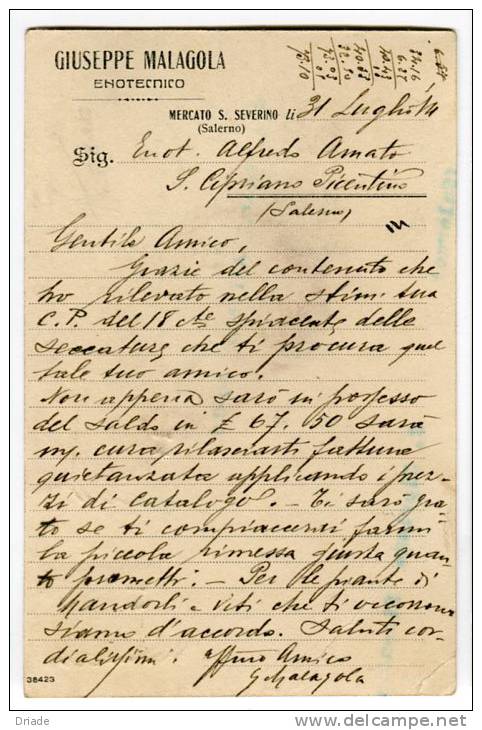 GIUSEPPE MALAGOLA
ENOTECNICO
MERCATO S. SEVERINO li 31 Luglio 14
(Salerno)
Sig. Enot. Alfredo Amato
S. Cipriano Picentino
(Salerno)
Gentile Amico,
Grazie del contenuto che
ho rilevato nella stim: tua
C. P. del 18 cte spiacente delle
seccature che ti procura quel
tale tuo amico.
Non appena sarò in possesso
del saldo in £ 67.50 sarà
my cura rilasciarti fattura
quietanzata applicando i prez-
zi di catalogo. - Ti sarò gra-
to se ti compiacerai farmi
la piccola rimessa giusta quan-
to prometti. - Per le piante di
Mandorli e Viti che ti occorrono
siamo d'accordo. Saluti cor-
dialissimi. affmo Amico
GMalagola
38423
Driade
delcampe.net